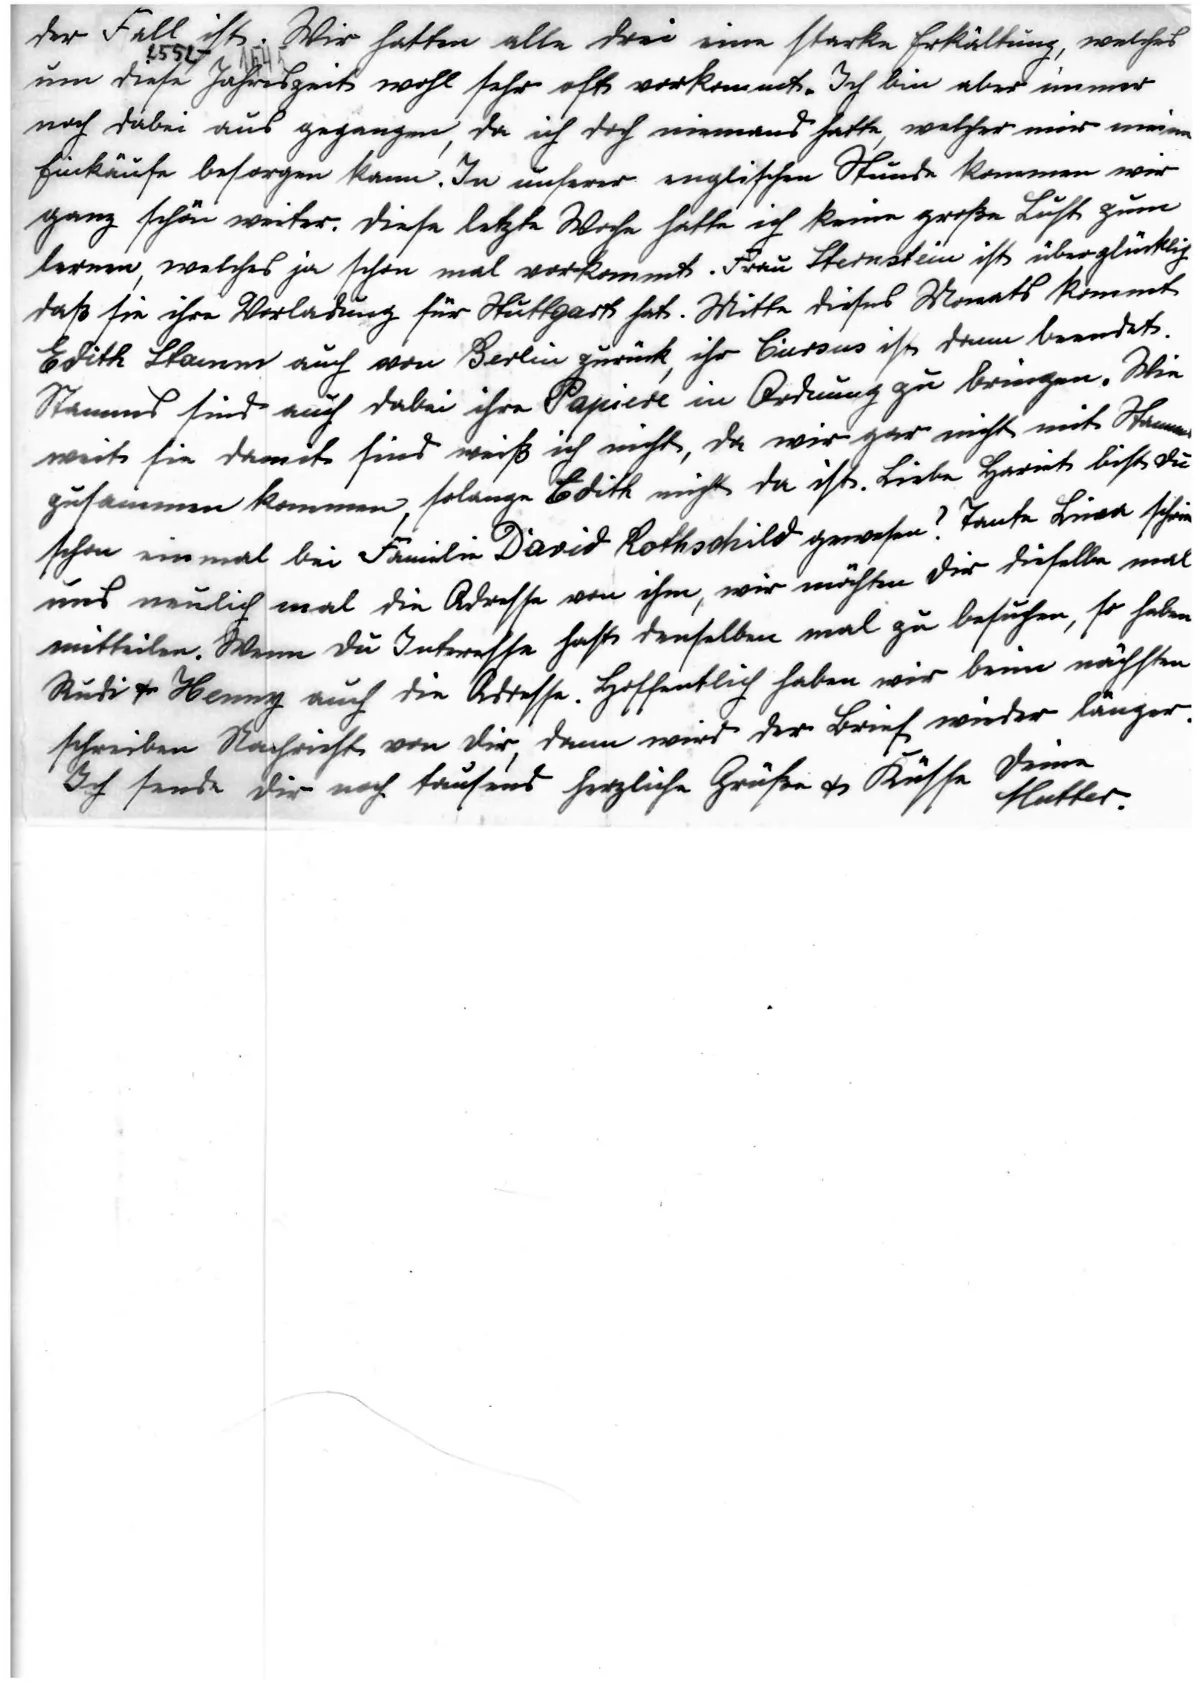 der Fall ist. Wir hatten alle drei eine starke Erkältung, welches
2552
um diese Jahreszeit wohl sehr oft vorkommt. Ich bin aber immer
noch dabei aus gegangen, da ich doch niemand hatte, welcher mir meine
Einkäufe besorgen kann. In unserer englischen Stunde kommen wir
ganz schön weiter. Diese letzte Woche hatte ich keine große Lust zum
lernen, welches ja schon mal vorkommt. Frau Sternstein ist überglücklich
daß sie ihre Vorladung für Stuttgart hat. Mitte dieses Monats kommt
Edith Stamm auch von Berlin zurück, ihr Cursus ist dann beendet.
Stamms sind auch dabei ihre Papiere in Ordnung zu bringen. Wie
weit sie damit sind weiß ich nicht, da wir gar nicht mit Stamms
zusammen kommen, solange Edith nicht da ist. Liebe Hariet bist Du
schon einmal bei Familie David Rothschild gewesen? Tante Linna schrieb
uns neulich mal die Adresse von ihm, wir möchten Dir dieselbe mal
mitteilen. Wenn Du Interesse hast denselben mal zu besuchen, so haben
Rudi & Henny auch die Adresse. Hoffentlich haben wir beim nächsten
schreiben Nachricht von Dir, dann wird der Brief wieder länger.
Ich sende Dir noch tausend herzliche Grüße & Küsse Deine
Mutter.